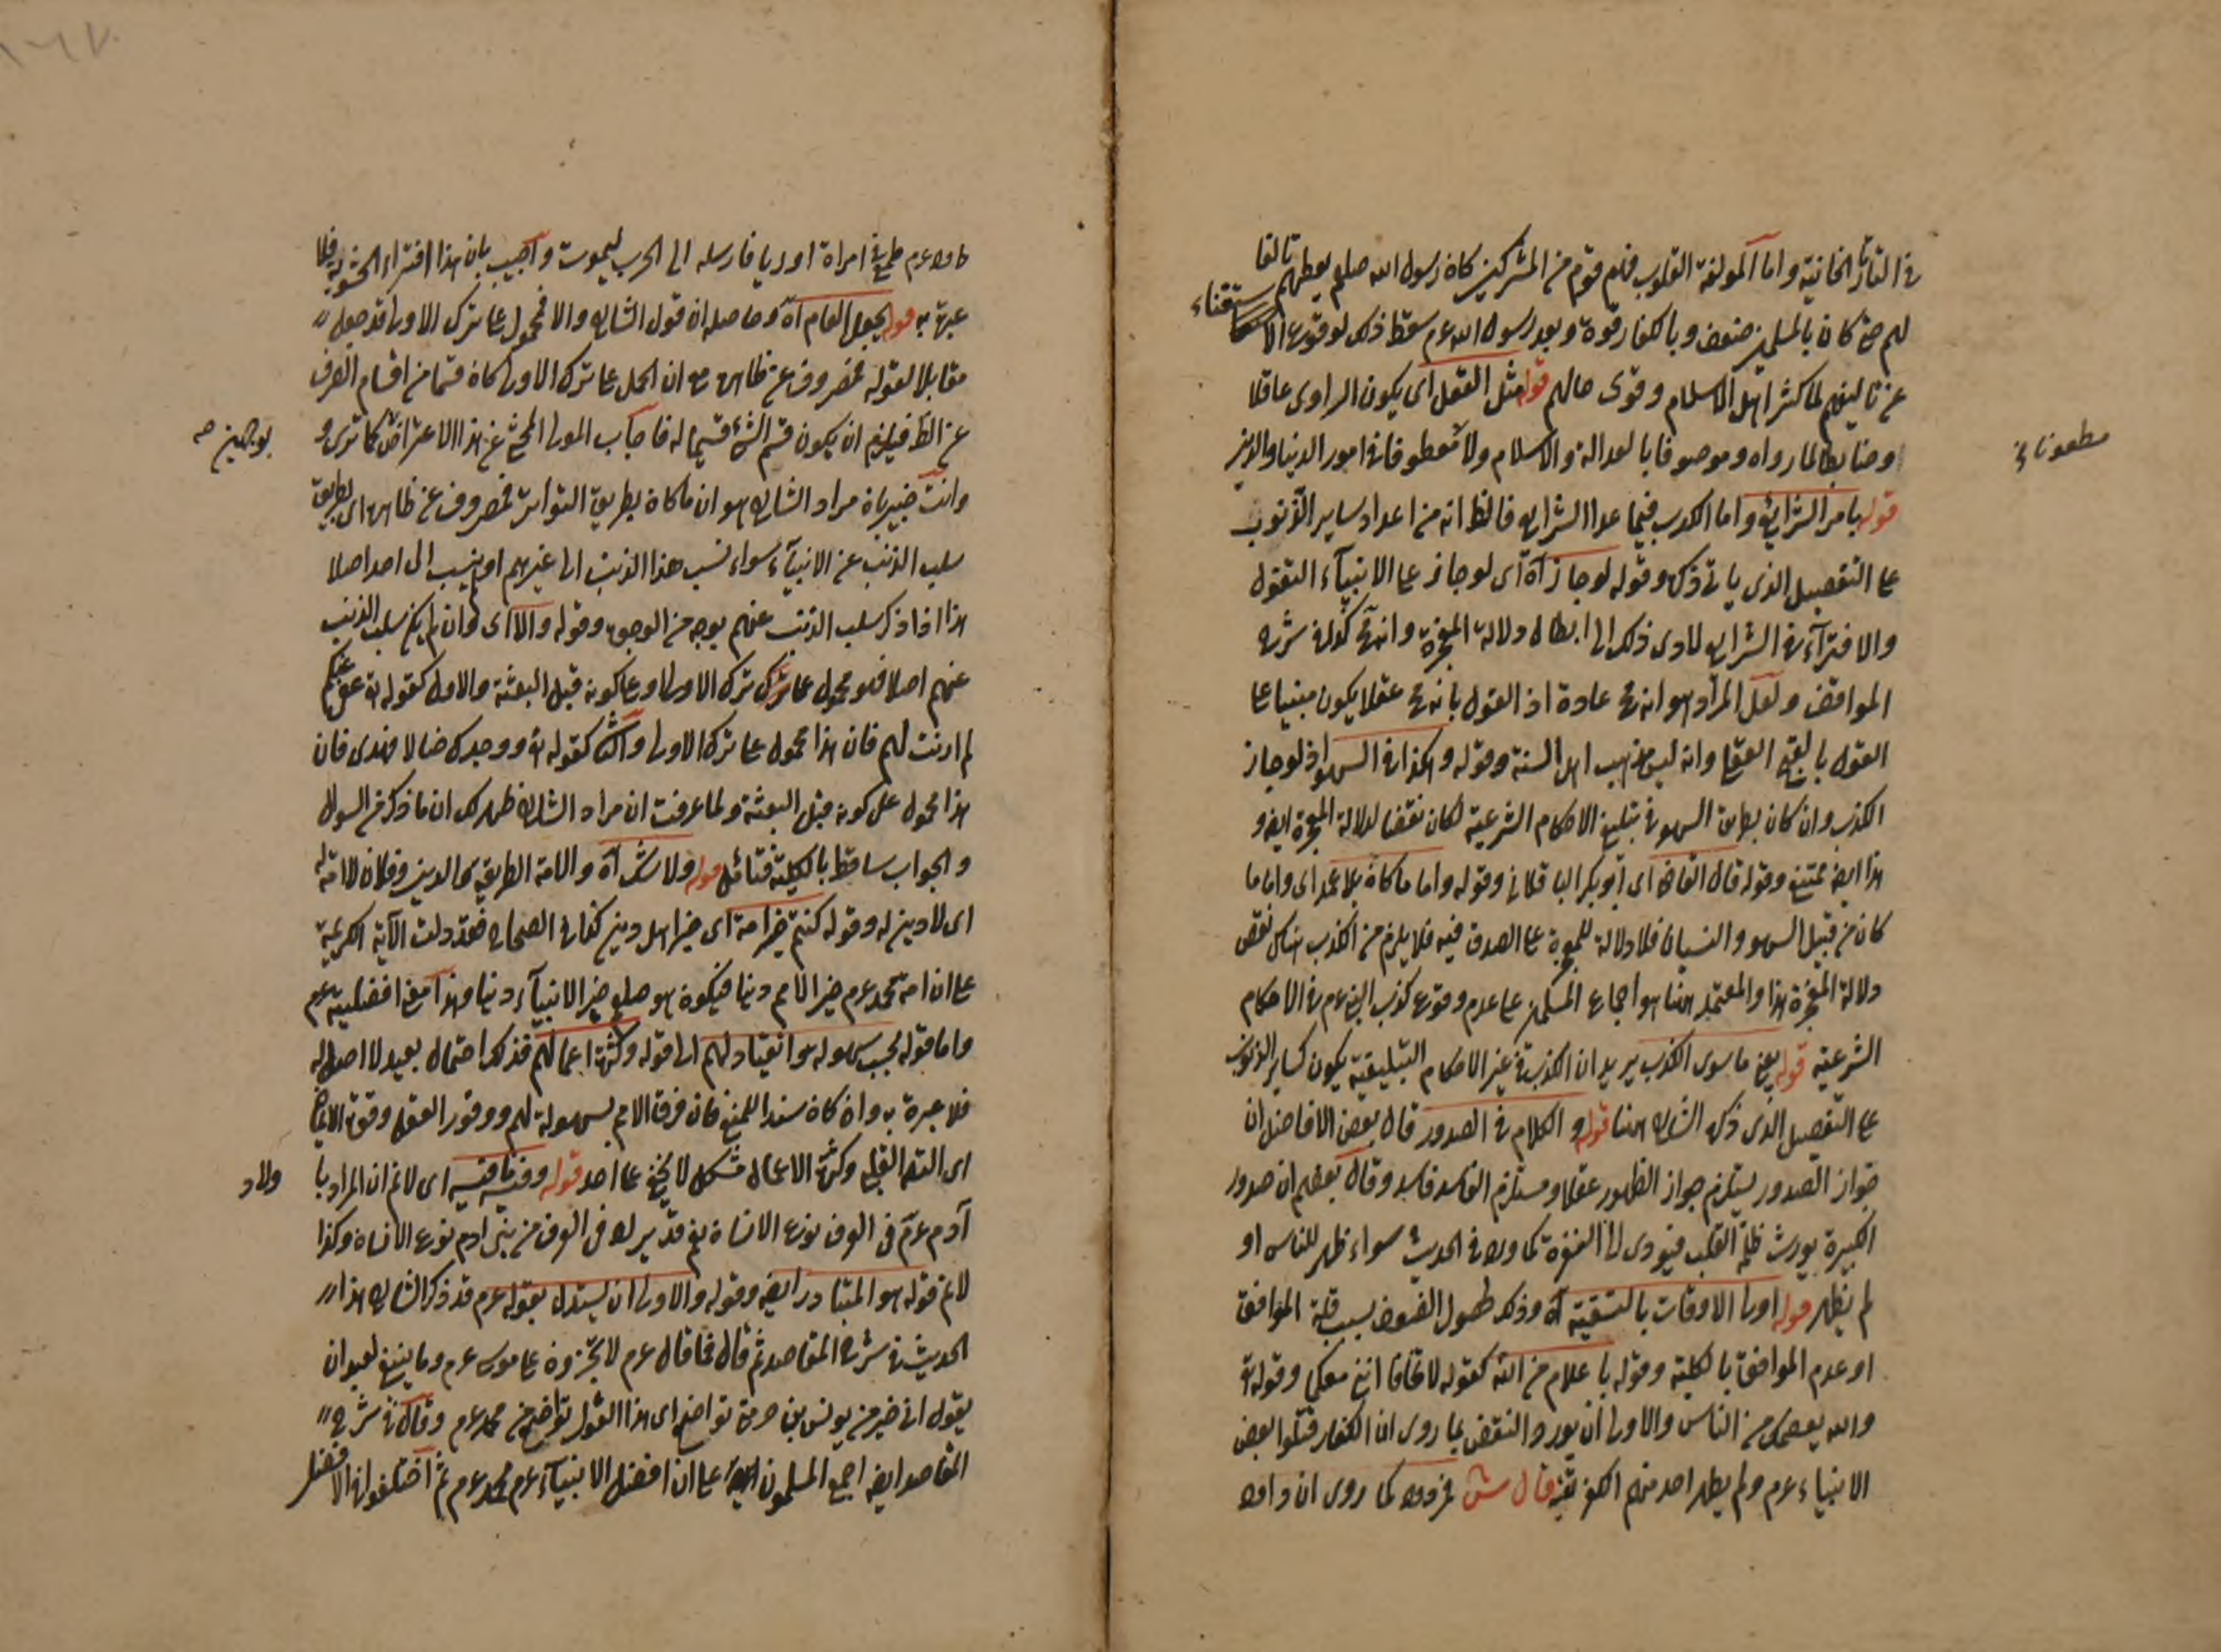 في التاتارخانية واما المولفة القلوب فهم قوم من المشركين كان رسول الله صلعم يعطيهم تالفا
لهم حين كان بالمسلمين ضعف وبالكفار قوة وبعد رسول الله عم سقط ذلك لوقوع الاستغناء
عن تاليفهم لما كثر اهل الاسلام وقوى حالهم قوله مثل العقل اى يكون الراوى عاقلا
وضابطا لما رواه وموصوفا بالعدالة والاسلام ولا مطعونا في امور الدنيا والدين
مطعونا في
قوله بامر الشرايع واما الكذب فيما عدا الشرايع فالظ انه من اعداد ساير الذنوب
على التفصيل الذى ياتى ذكره وقوله لو جاز آه اى لو جاز على الانبيآء التقول
والافترآء في الشرايع لادى ذلك الى ابطال دلالة المعجزة وانه مح كذا في شرح
المواقف ولعل المراد هو انه مح عادة اذ القول بانه مح عقلا يكون مبنيا على
القول بالقبح العقلى وانه ليس مذهب اهل السنة وقوله وهكذا في السهو اذ لو جاز
الكذب وان كان بطريق السهو في تبليغ الاحكام الشرعية لكان نقضا لدلالة المعجزة ايضا و
هذا ايضا ممتنع وقوله قال القاضى اى ابو بكر الباقلانى وقوله واما ما كان بلا عمد اى واما ما
كان من قبيل السهو والنسيان فلا دلالة للمعجزة على الصدق فيه فلا يلزم من الكذب هناك نقض
دلالة المعجزة هذا والمعتمد ههنا هو اجماع المسلمين على عدم وقوع كذب النبى عم في الاحكام
الشرعية قوله يعنى ما سوى الكذب يريد ان الكذب في غير الاحكام التبليغية يكون كساير الذنوب
على التفصيل الذى ذكره الشارح ههنا قوله والكلام في الصدور قال بعض الافاضل ان
جواز الصدور يستلزم جواز الظهور عقلا ومستلزم الفاسد فاسد وقال بعضهم ان صدور
الكبيرة يورث ظلمة القلب فيودى الى النفرة كما ورد في الحديث سواء ظهر للناس او
لم يظهر قوله اولى الاوقات بالتقية آه وذلك لحصول الضعف بسبب قلة الموافق
او عدم الموافق بالكلية وقوله باعلام من الله كقوله لا تخافا اننى معكما وقوله تع
والله يعصمك من الناس والاولى ان يورد النقض بما روى ان الكفار قتلوا بعض
الانبياء عم ولم يظهر احد منهم الكفر تقية قال ش فمردود كما روى ان داود
داود عم طمع في امراة اوريا فارسله الى الحرب ليموت واجيب بان هذا افتراء الحشوية فلا
عبرة به قوله بجعل العام آه وحاصله ان قول الشارح والا فمحمول على ترك الاولى قد جعل
مقابلا لقوله فمصروف عن ظاهره مع ان الحمل على ترك الاولى كان قسما من اقسام الصرف
عن الظ فيلزم ان يكون قسم الشئ قسيما له فاجاب المولى المحشى عن هذا الاعتراض كما ترى و
بوجهين صح
وانت خبير بان مراد الشارح هو ان ما كان بطريق التواتر فمصروف عن ظاهره اى بطريق
سلب الذنب عن الانبيآء سواء نسب هذا الذنب الى غيرهم او لم ينسب الى احد اصلا
هذا اذا ذكر سلب الذنب عنهم بوجه من الوجوه وقوله والا اى وان لم يكن سلب الذنب
عنهم اصلا فهو محمول على ترك الاولى او على كونه قبل البعثة والاول كقوله تع عفى الله عنك
لم اذنت لهم فان هذا محمول على ترك الاولى والثانى كقوله تع ووجدك ضالا فهدى فان
هذا محمول على كونه قبل البعثة ولما عرفت ان مراد الشارح ظهر لك ان ما ذكر من السوال
والجواب ساقط بالكلية فتامل قوله ولا شك آه والامة الطريقة والدين وفلان لا امة له
اى لا دين له وقوله كنتم خير امة اى خير اهل دين كذا في الصحاح فقد دلت الآية الكريمة
على ان امة محمد عم خير الامم دينا فيكون هو صلعم خير الانبيآء دينا وهذا معنى افضليته عم
واما قوله بحسب سهولة هو انقيادهم الى قوله وكثرة اعمالهم فذلك احتمال بعيد لا اصل له
فلا عبرة به وان كان سندا للمنع فان فرق الامم بسهولة لهم ووفور العقل وقوة الايمان
اى القلبى وكثرة الاعمال مشكل لا يخفى على احد قوله وفيه ما فيه اى لا نم ان المراد با
ولاد
آدم عم في العرف نوع الانسان نعم قد يراد في العرف من بنى ادم نوع الانسان وكذا
لا نم قوله هو المتبادر ايضا وقوله والاولى ان يستدل بقوله عم قد ذكر الشارح هذا
الحديث في شرح المقاصد ثم قال فما قال عم لا تخيرونى على موسى عم وما ينبغى لعبد ان
يقول انى خير من يونس بن متى تواضع اى هذا القول تواضع من محمد عم وقال في شرح
المقاصد ايضا اجمع المسلمون على ان افضل الانبيآء عم محمد عم ثم اختلفوا في الافضل